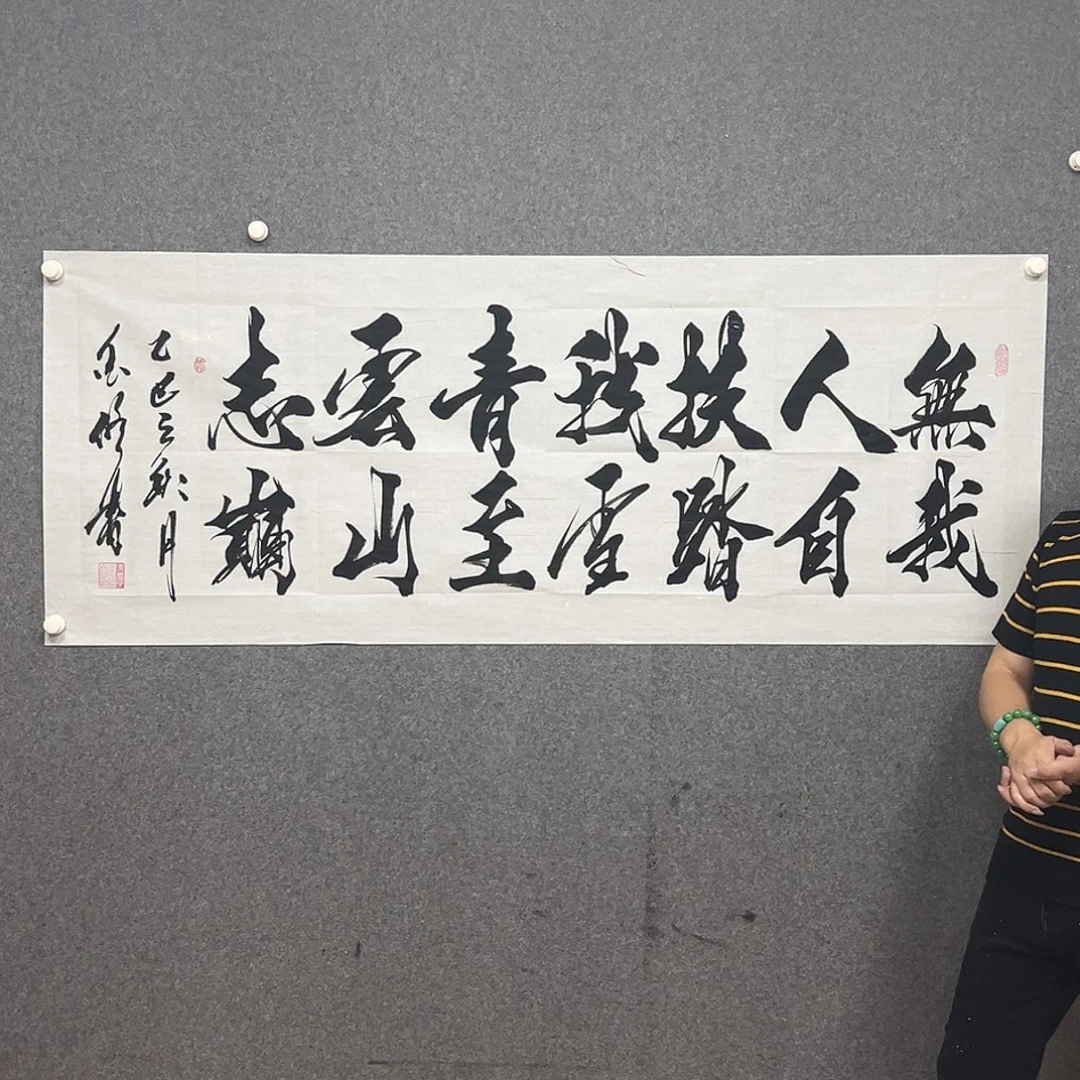 無人扶我青雲志
我自踏雪至山巔
乙巳之秋月
書